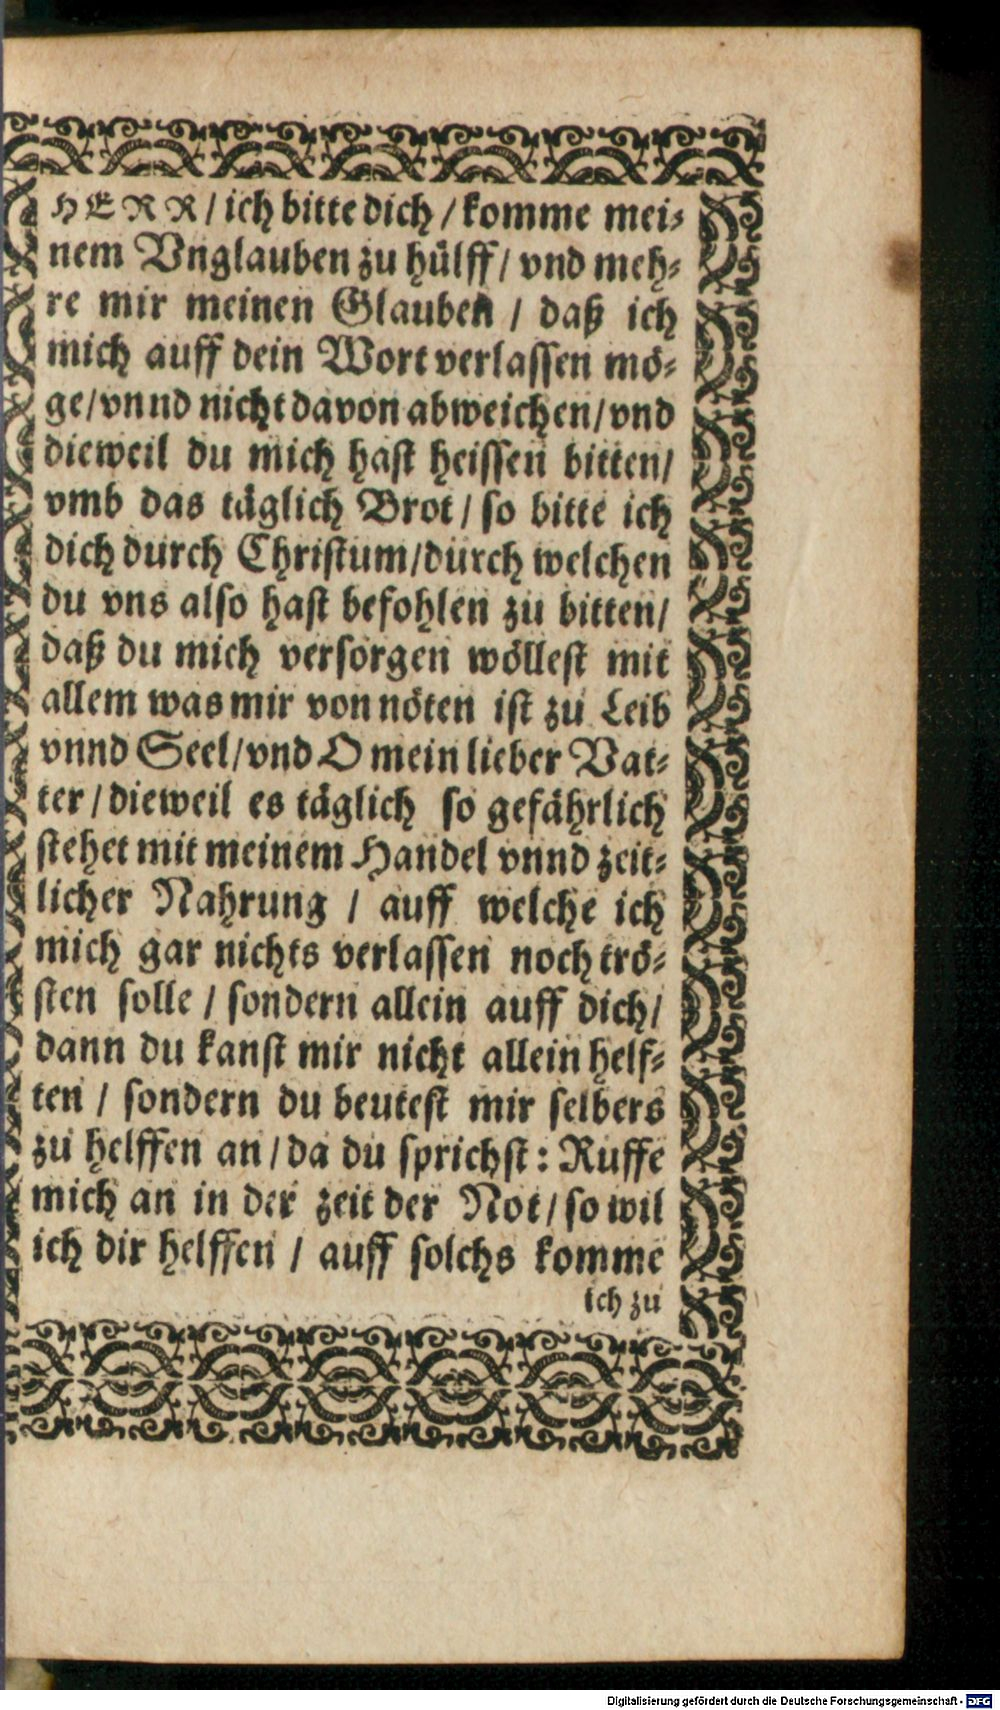 HERR / ich bitte dich / komme mei⸗
nem Vnglauben zu hülff / vnd meh⸗
re mir meinen Glauben / daß ich
mich auff dein Wort verlassen mö⸗
ge / vnnd nicht davon abweichen / vnd
dieweil du mich hast heissen bitten /
vmb das täglich Brot / so bitte ich
dich durch Christum / durch welchen
du vns also hast befohlen zu bitten /
daß du mich versorgen wöllest mit
allem was mir von nöten ist zu Leib
vnnd Seel / vnd O mein lieber Vat⸗
ter / dieweil es täglich so gefährlich
stehet mit meinem Handel vnnd zeit⸗
licher Nahrung / auff welche ich
mich gar nichts verlassen noch trö⸗
sten solle / sondern allein auff dich /
dann du kanst mir nicht allein helf⸗
ten / sondern du beutest mir selbers
zu helffen an / da du sprichst : Ruffe
mich an in der zeit der Not / so wil
ich dir helffen / auff solchs komme
ich zu
Digitalisierung gefördert durch die Deutsche Forschungsgemeinschaft - DFG